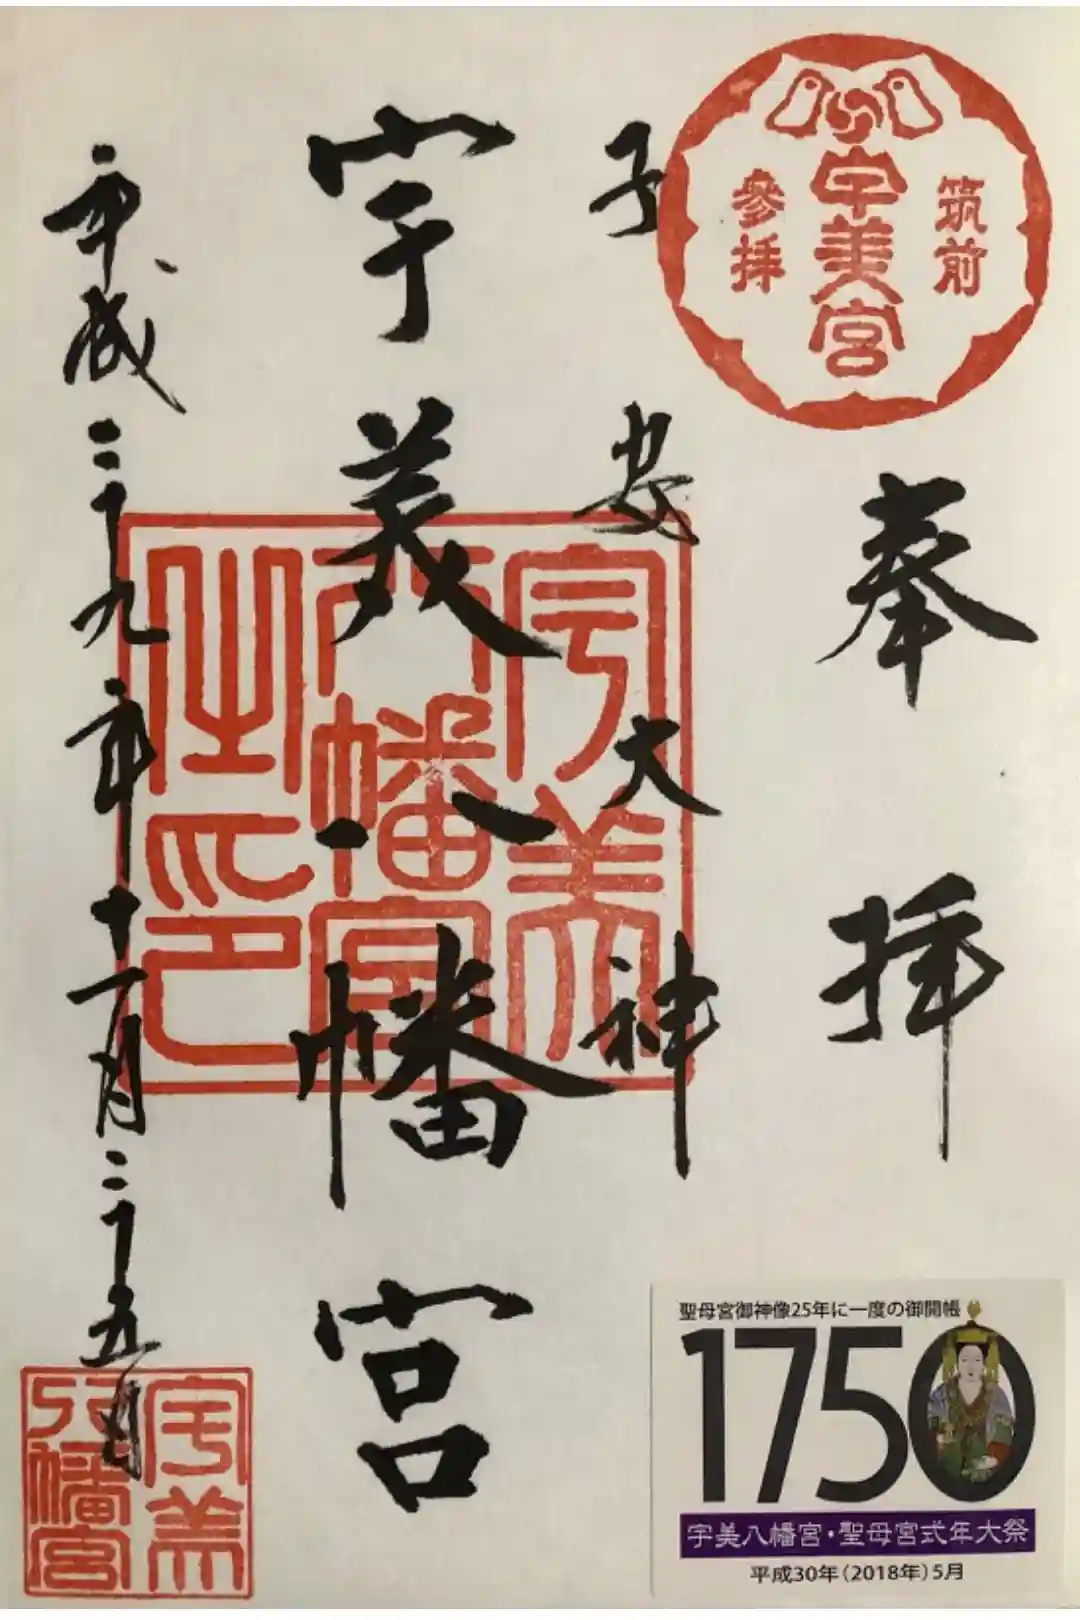 筑前
宇美宮
參拝
奉拝
子安大神
宇美八幡宮
平成二十九年十一月二十五日
宇美
八幡宮
之印
宇美
八幡宮
聖母宮御神像25年に一度の御開帳
1750
宇美八幡宮・聖母宮式年大祭
平成30年(2018年)5月